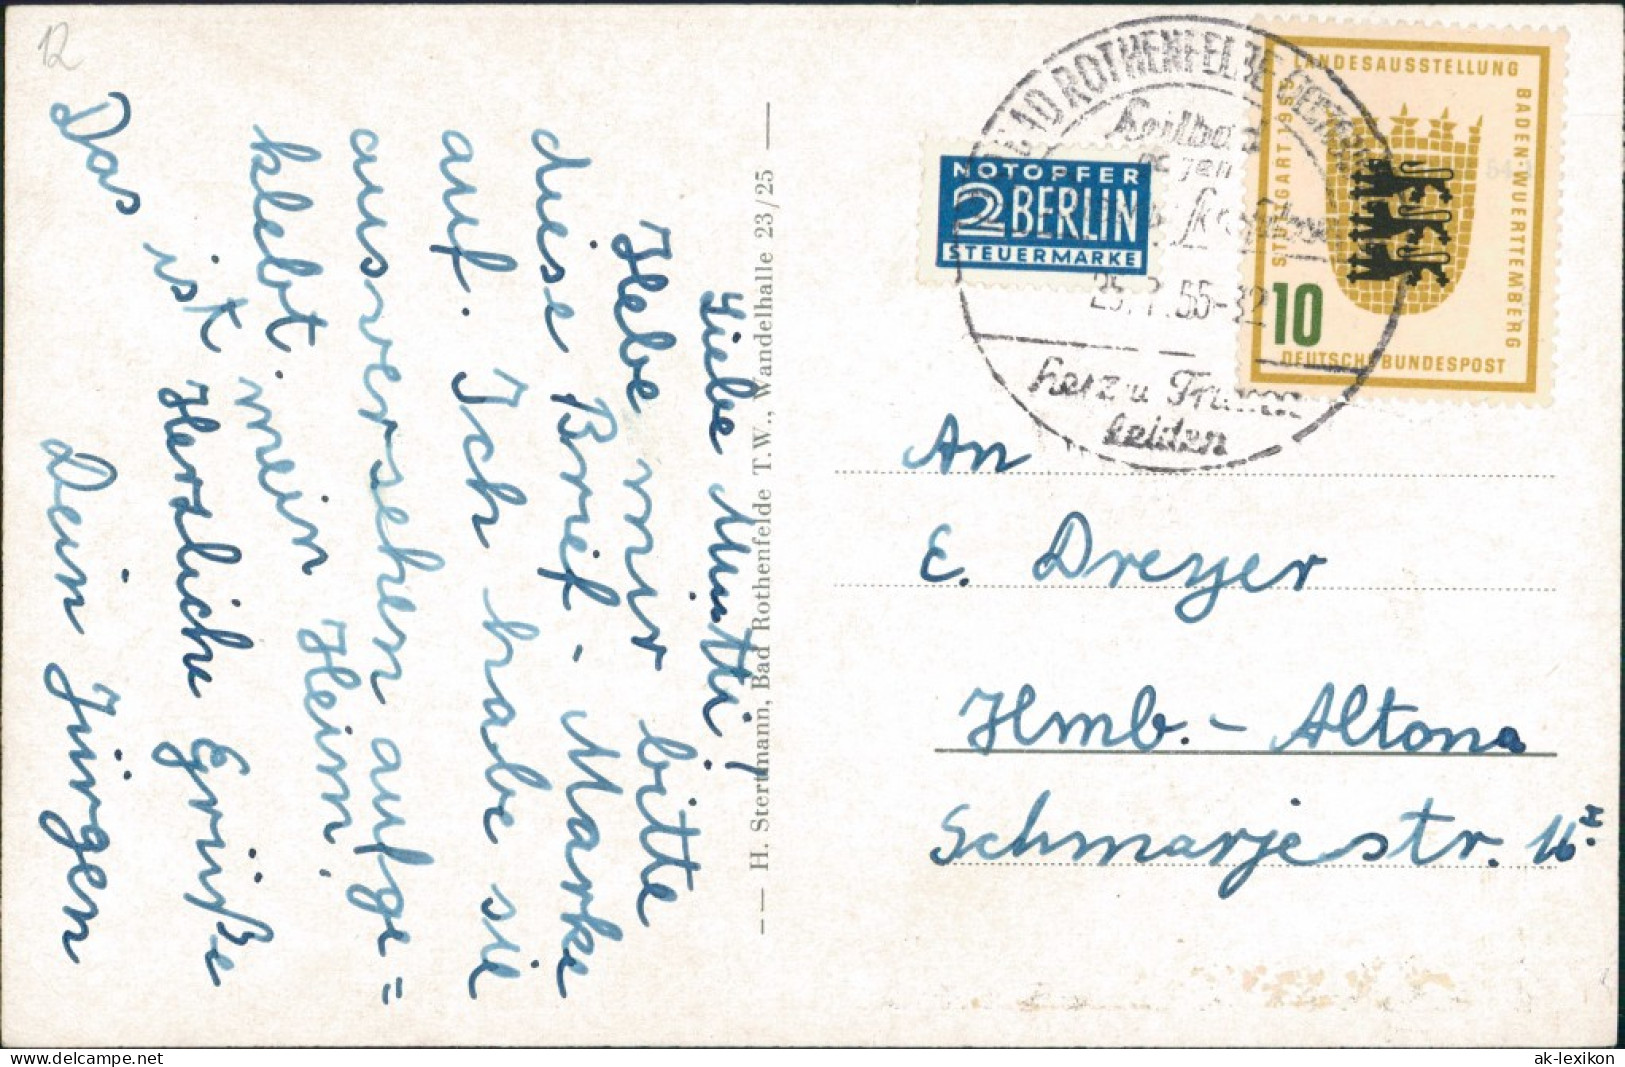 12
Liebe Mutti!
Hebe mir bitte
diese Brief-Marke
auf. Ich habe sie
ausversehen aufge=
klebt. mein Heim.
Das ist Herzliche Grüße
Dein Jürgen
-- H. Stertmann, Bad Rothenfelde T.W., Wandelhalle 23/25 —
BAD ROTHENFELDE
Heilbad
gegen
25. 7. 55-12
herz u
leiden
NOTOPFER
2 BERLIN
STEUERMARKE
LANDESAUSSTELLUNG
BADEN-WUERTTEMBERG
STUTTGART 1955
10
DEUTSCHE BUNDESPOST
An
E. Dreyer
Hmb.- Altona
Schmarjestr.
www.delcampe.net
ak-lexikon